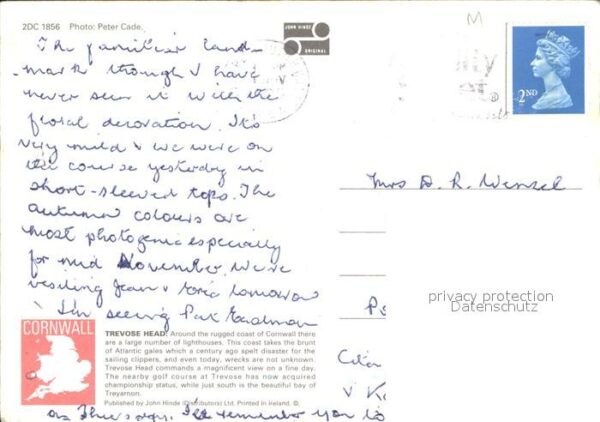 2DC 1856 Photo: Peter Cade.
JOHN HINDE
ORIGINAL
M
2ND
The familiar land-
mark though I have
never seen it with the
floral decoration. It's
very mild & we were on
the course yesterday in
short-sleeved tops. The
autumn colours are
most photogenic especially
for mid November. We're
visiting Jean & Eric tomorrow
I'm seeing Pat Eardman
Mrs D. R. Wenzel
privacy protection
Datenschutz
CORNWALL
TREVOSE HEAD: Around the rugged coast of Cornwall there
are a large number of lighthouses. This coast takes the brunt
of Atlantic gales which a century ago spelt disaster for the
sailing clippers, and even today, wrecks are not unknown.
Trevose Head commands a magnificent view on a fine day.
The nearby golf course at Trevose has now acquired
championship status, while just south is the beautiful bay of
Treyarnon.
Published by John Hinde (Distributors) Ltd. Printed in Ireland. ©
on Thursday. I'll remember you to